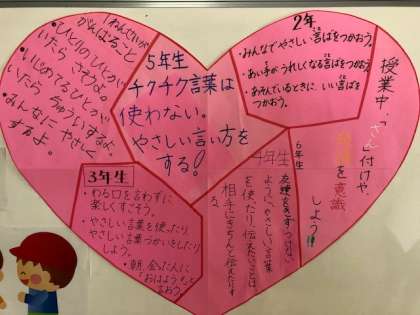 1ねんせいが
がんばること
・ひとりのひとが
いたら さそうよ。
・いじめてるひとが
いたら ちゅういするよ。
・みんなに やさしく
するよ。
2年
・みんなでやさしい言ばをつかおう。
・あい手がうれしくなる言ばをつかおう。
・あそんでいるときに、いい言ばを
つかおう。
5年生
チクチク言葉は
使わない。
やさしい言い方を
する!!
3年生
・わる口を言わずに
楽しくすごそう。
・やさしい言葉を使ったり
やさしい言葉づかいをしたり
しよう。
・朝、会った人に
「おはよう」と
言おう。
4年生
友達をきずつけない
ように、やさしい言葉
を使ったり、伝えたいことは、
相手にきちんと伝えたりする
6年生
授業中、「さん」付けや、
を意識
しよう!!